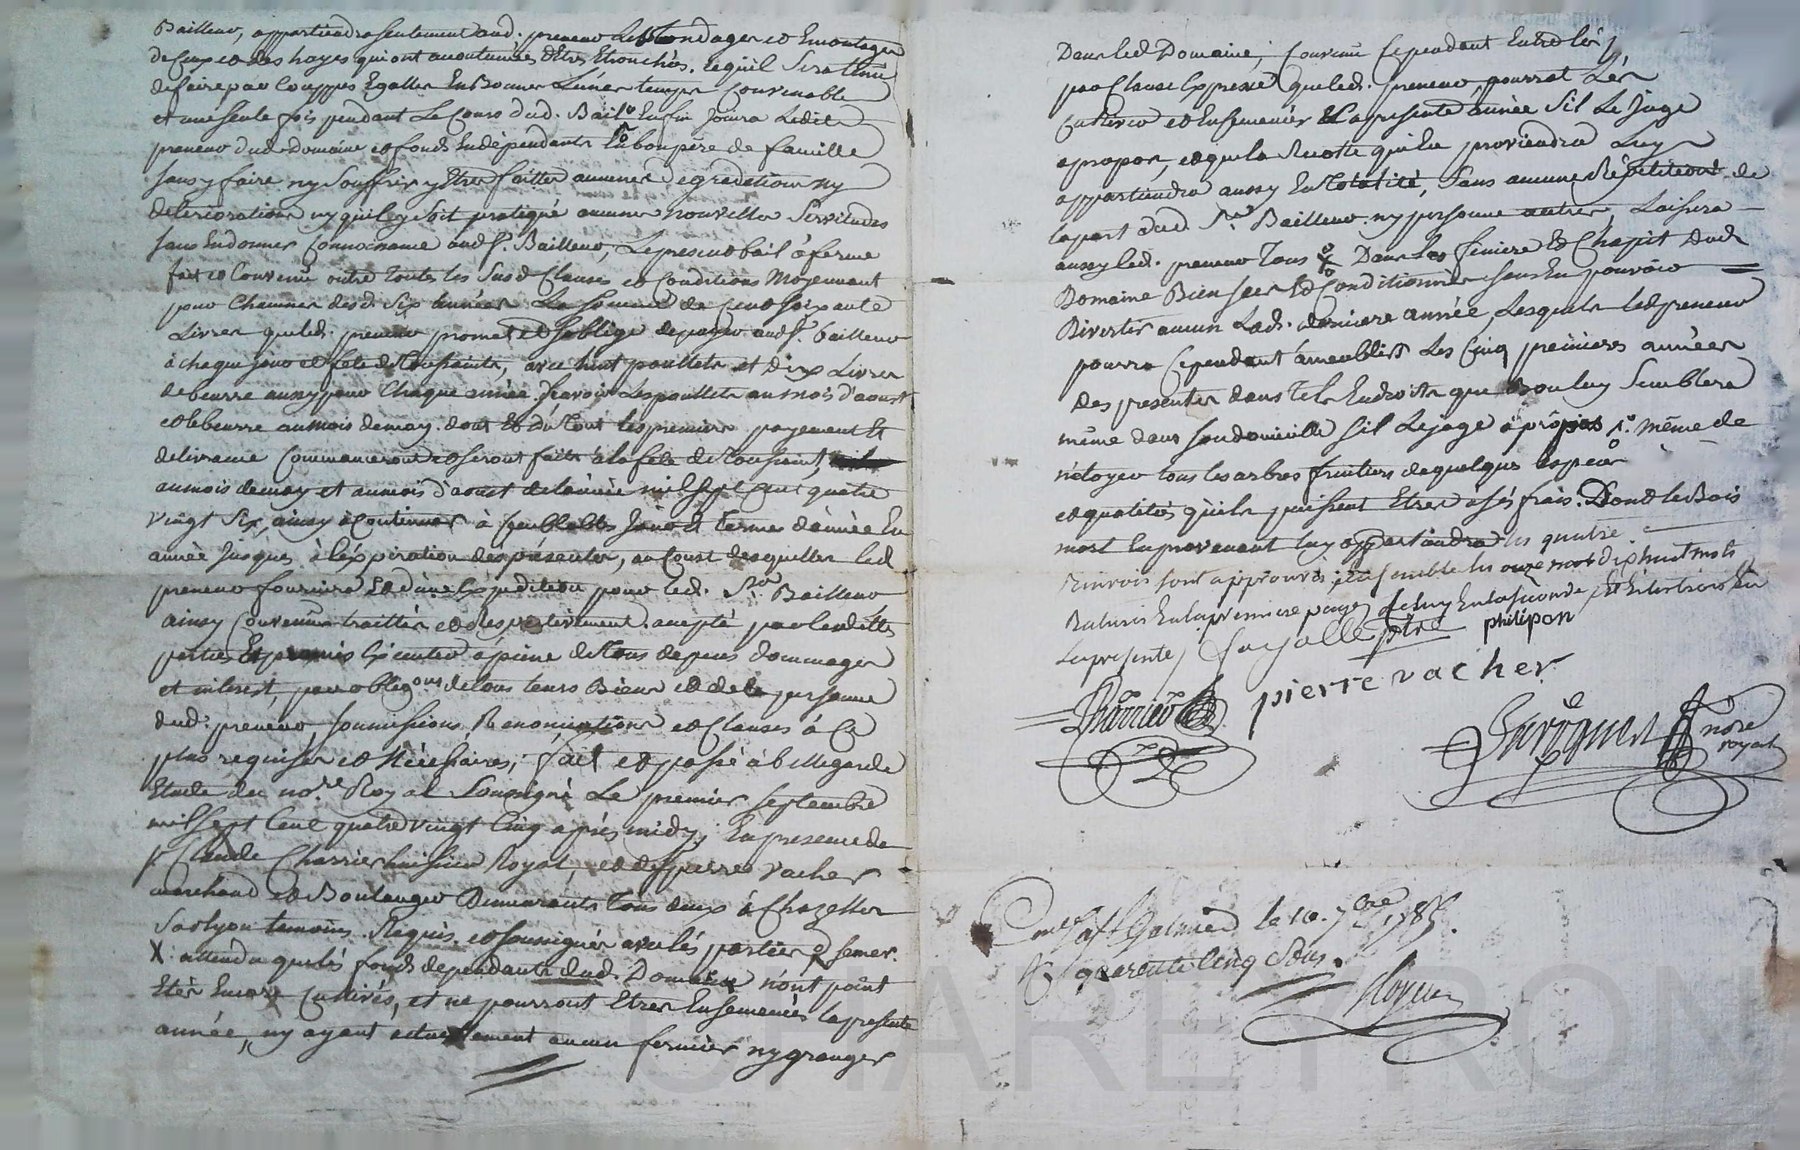 Bailleur, appartiendra seulement aud. preneur les tondages et Emontages
de ceux et des hayes qui ont accoutumés d'Etres Etronchés, ce qu'il Sera tenu
de faire par Couppes Egalles En Bonnes Lunes temps Convenable
et une seule fois pendant Le Cours dud. Bail Enfin Jouira Ledit
preneur dud. Domaine et fonds En dépendants En bon père de famille
sans y faire ny Souffrir y Etres faittes aucunes Degradations ny
déteriorations ny qu'il y Soit pratiqué aucunes nouvelles Servitudes
sans En donner Connoissance aud. Sr. Bailleur, Le présent bail à ferme
fait et Convenu outre toutes les Susd. Clauses et Conditions Moyennant
pour Chacunes desd. Six années La Somme de Cent Soixante
Livres que led. preneur promet et s'oblige de payer aud. Sr. bailleur
à chaque jour et fete de Toussaints, avec huit poullets et Dix Livres
de beurre aussy pour Chaque année. Scavoir Les poullets au mois d'aoust
et le beurre au mois de may. dont Et du Tout les premiers payement Et
delivrance Commenceront et Seront faits à la fete de Toussaint
au mois de may et au mois d'aoust de l'année mil Sept Cent quatre
vingt Six, ainsy à Continuer à Semblables Jours Et termes d'année En
année Jusques à l'expiration des présentes, au Court desquelles led.
preneur fournira Led. d'une Expedition pour led. Sr. Bailleur
ainsy Convenu traittés et Respectivement accepté par lesdittes
parties Et promis Executer à peine de Tous depens dommages
et interest, par obligons de tous leurs Biens et de la personne
dud: preneur, Soumissions, Renonciations et Clauses à Ce
plus requises et Nécessaires, fait et passé à bellegarde
Etude du nore. Royal Soussigné Le premier Septembre
mil Sept Cent quatre vingt Cinq après midy; En présence de
sr Claude Charrier huissier Royal, et de Sr pierre vacher
marchand et Boulanger Demeurants Tous deux à Chazelles
Sur Lyon temoins Requis et Soussignés avec lés parties
X. attendu que les fonds dependants dud. Domaine n'ont point
Etés Encore Cultivés, et ne pourront Etres Ensemencés la presente
année, ny ayant actuellement aucun fermier ny granger
Dans led. Domaine; Convenu Cependant Entre les
par Clause Expresse que led. preneur, pourrat Les
Cultiver et Ensemencer La presente année S'il Le Juge
apropos, et que la Recolte qui En proviendra Luy
appartiendra aussy En Totalité, Sans aucune Répétition de
la part dud. Sr. Bailleur ny personne autres, Laissera
aussy led. preneur Tous Dans les feniere Et Chapit dud.
Domaine Bien Secs Et Conditionnés sans En pouvoir
Divertir aucun Lad. derniere année, Lesquels led. preneur
pourra Cependant ameublir Les Cinq premieres années
des presentes dans Tels Endroits que Bon luy Semblera
même dans Son domicille S'il Le juge à propos même de
netoyer tous les arbres fruitiers de quelques especes
et qualités qu'ils puissent Etres à Ses frais. Dont le Bois
mort En provenant luy appartiendra les quatre
Renvois sont approuvés Ensemble les onze mots dix huit mots
Raturés En la premiere page, En la Seconde Et En
La presente /. Fayolle ptre philipon
pierre vacher
Charrier
nore royal
Conl. a St. Galmier le 10. 7bre 1785.
R quarente Cinq Sous.
CHAREYRON